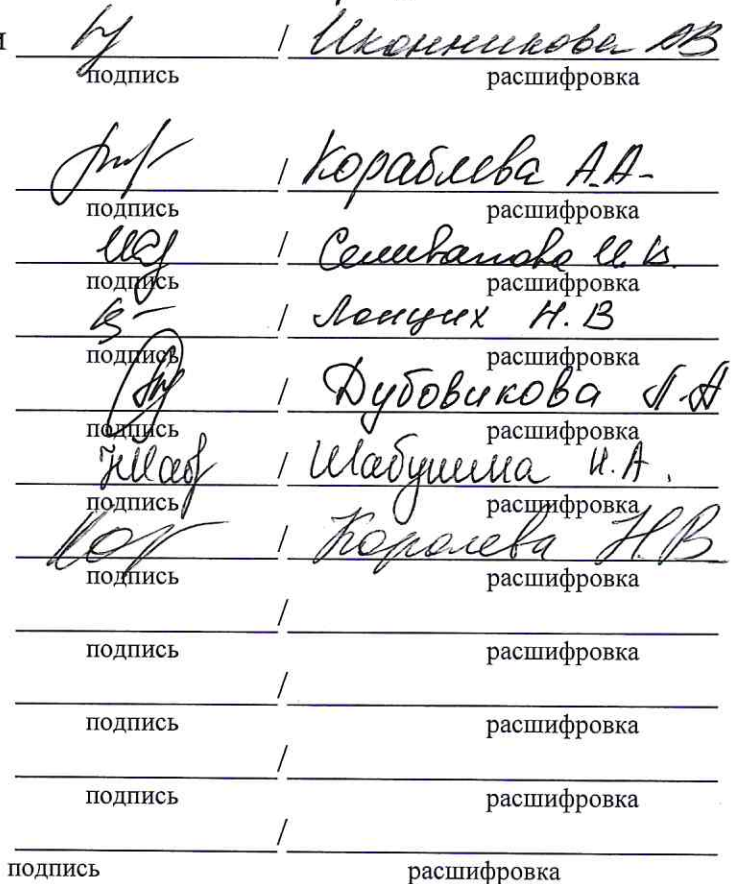 и / Иконникова АВ
подпись расшифровка
/ Кораблева А.А-
подпись расшифровка
/ Селиванова И.В.
подпись расшифровка
/ Лонцих Н.В
подпись расшифровка
/ Дубовикова Л.А
подпись расшифровка
НШаб / Шабушина Н.А.
подпись расшифровка
Кор / Королева Н.В
подпись расшифровка
/
подпись расшифровка
/
подпись расшифровка
/
подпись расшифровка
/
подпись расшифровка